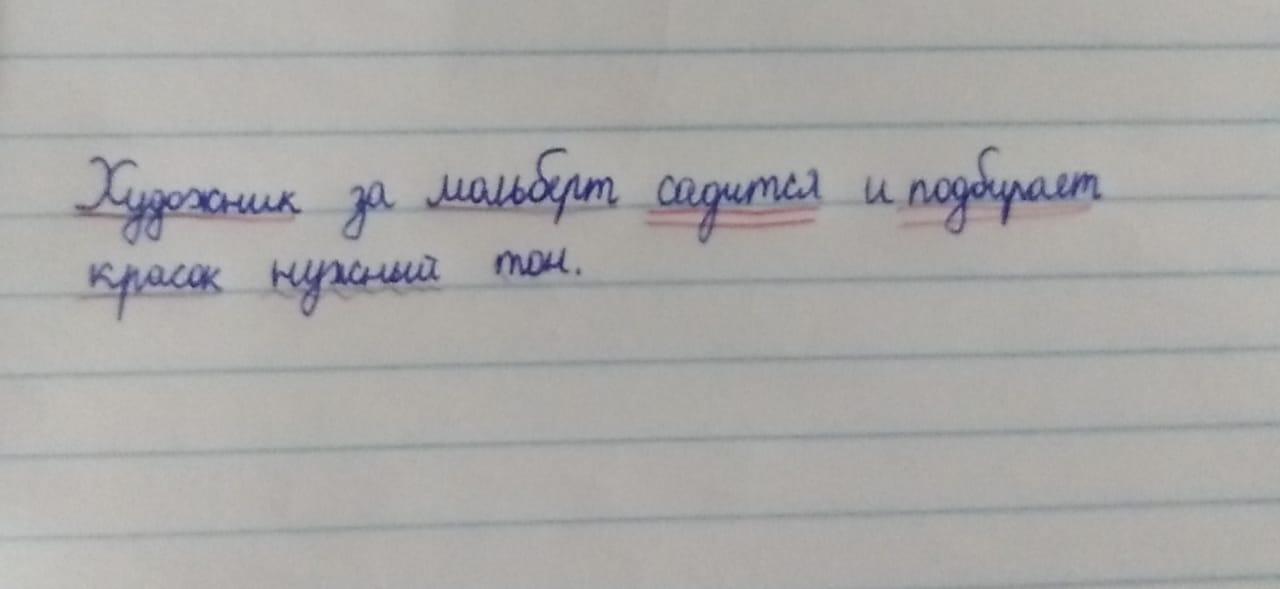 Художник за мольберт садится и подбирает
красок нужный тон.